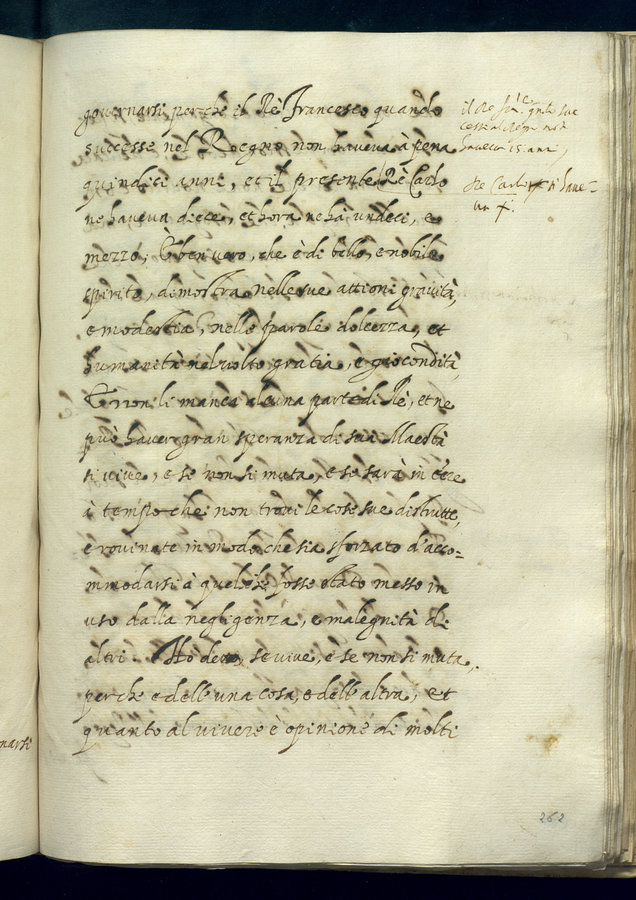 governarsi perche il Rè Francesco quando
successe nel Roegno non haveva à pena
quindeci anni, et il presente Rè Carlo
ne haveva diece, et hora ne hà undeci, e
mezzo; È ben vero, che è di bello, e nobile
spirito, dimostra nelle sue attioni gravità,
e modestia, nelle parole dolcezza, et
humanità nel volto gratia, e giocondità,
Et non li manca alcuna parte di Rè, et ne
può haver gran speranza di sua Maestà
si vive, e se non si muta, e se sarà in età
à tempo che non trovi le cose sue distrutte,
e rovinate in modo, che sia sforzato d'acco-
mmodarsi à quel che fosse stato messo in
uso dalla negligenza, e malegnità di
altri. Ho detto, se vive, e se non si muta,
perche e dell'una cosa, e dell'altra, et
quanto al vivere è opinione di molti
il Re qndo suc
cesse al non
haveva 15 anni,
Re Carlo have-
va X.
narsi
262